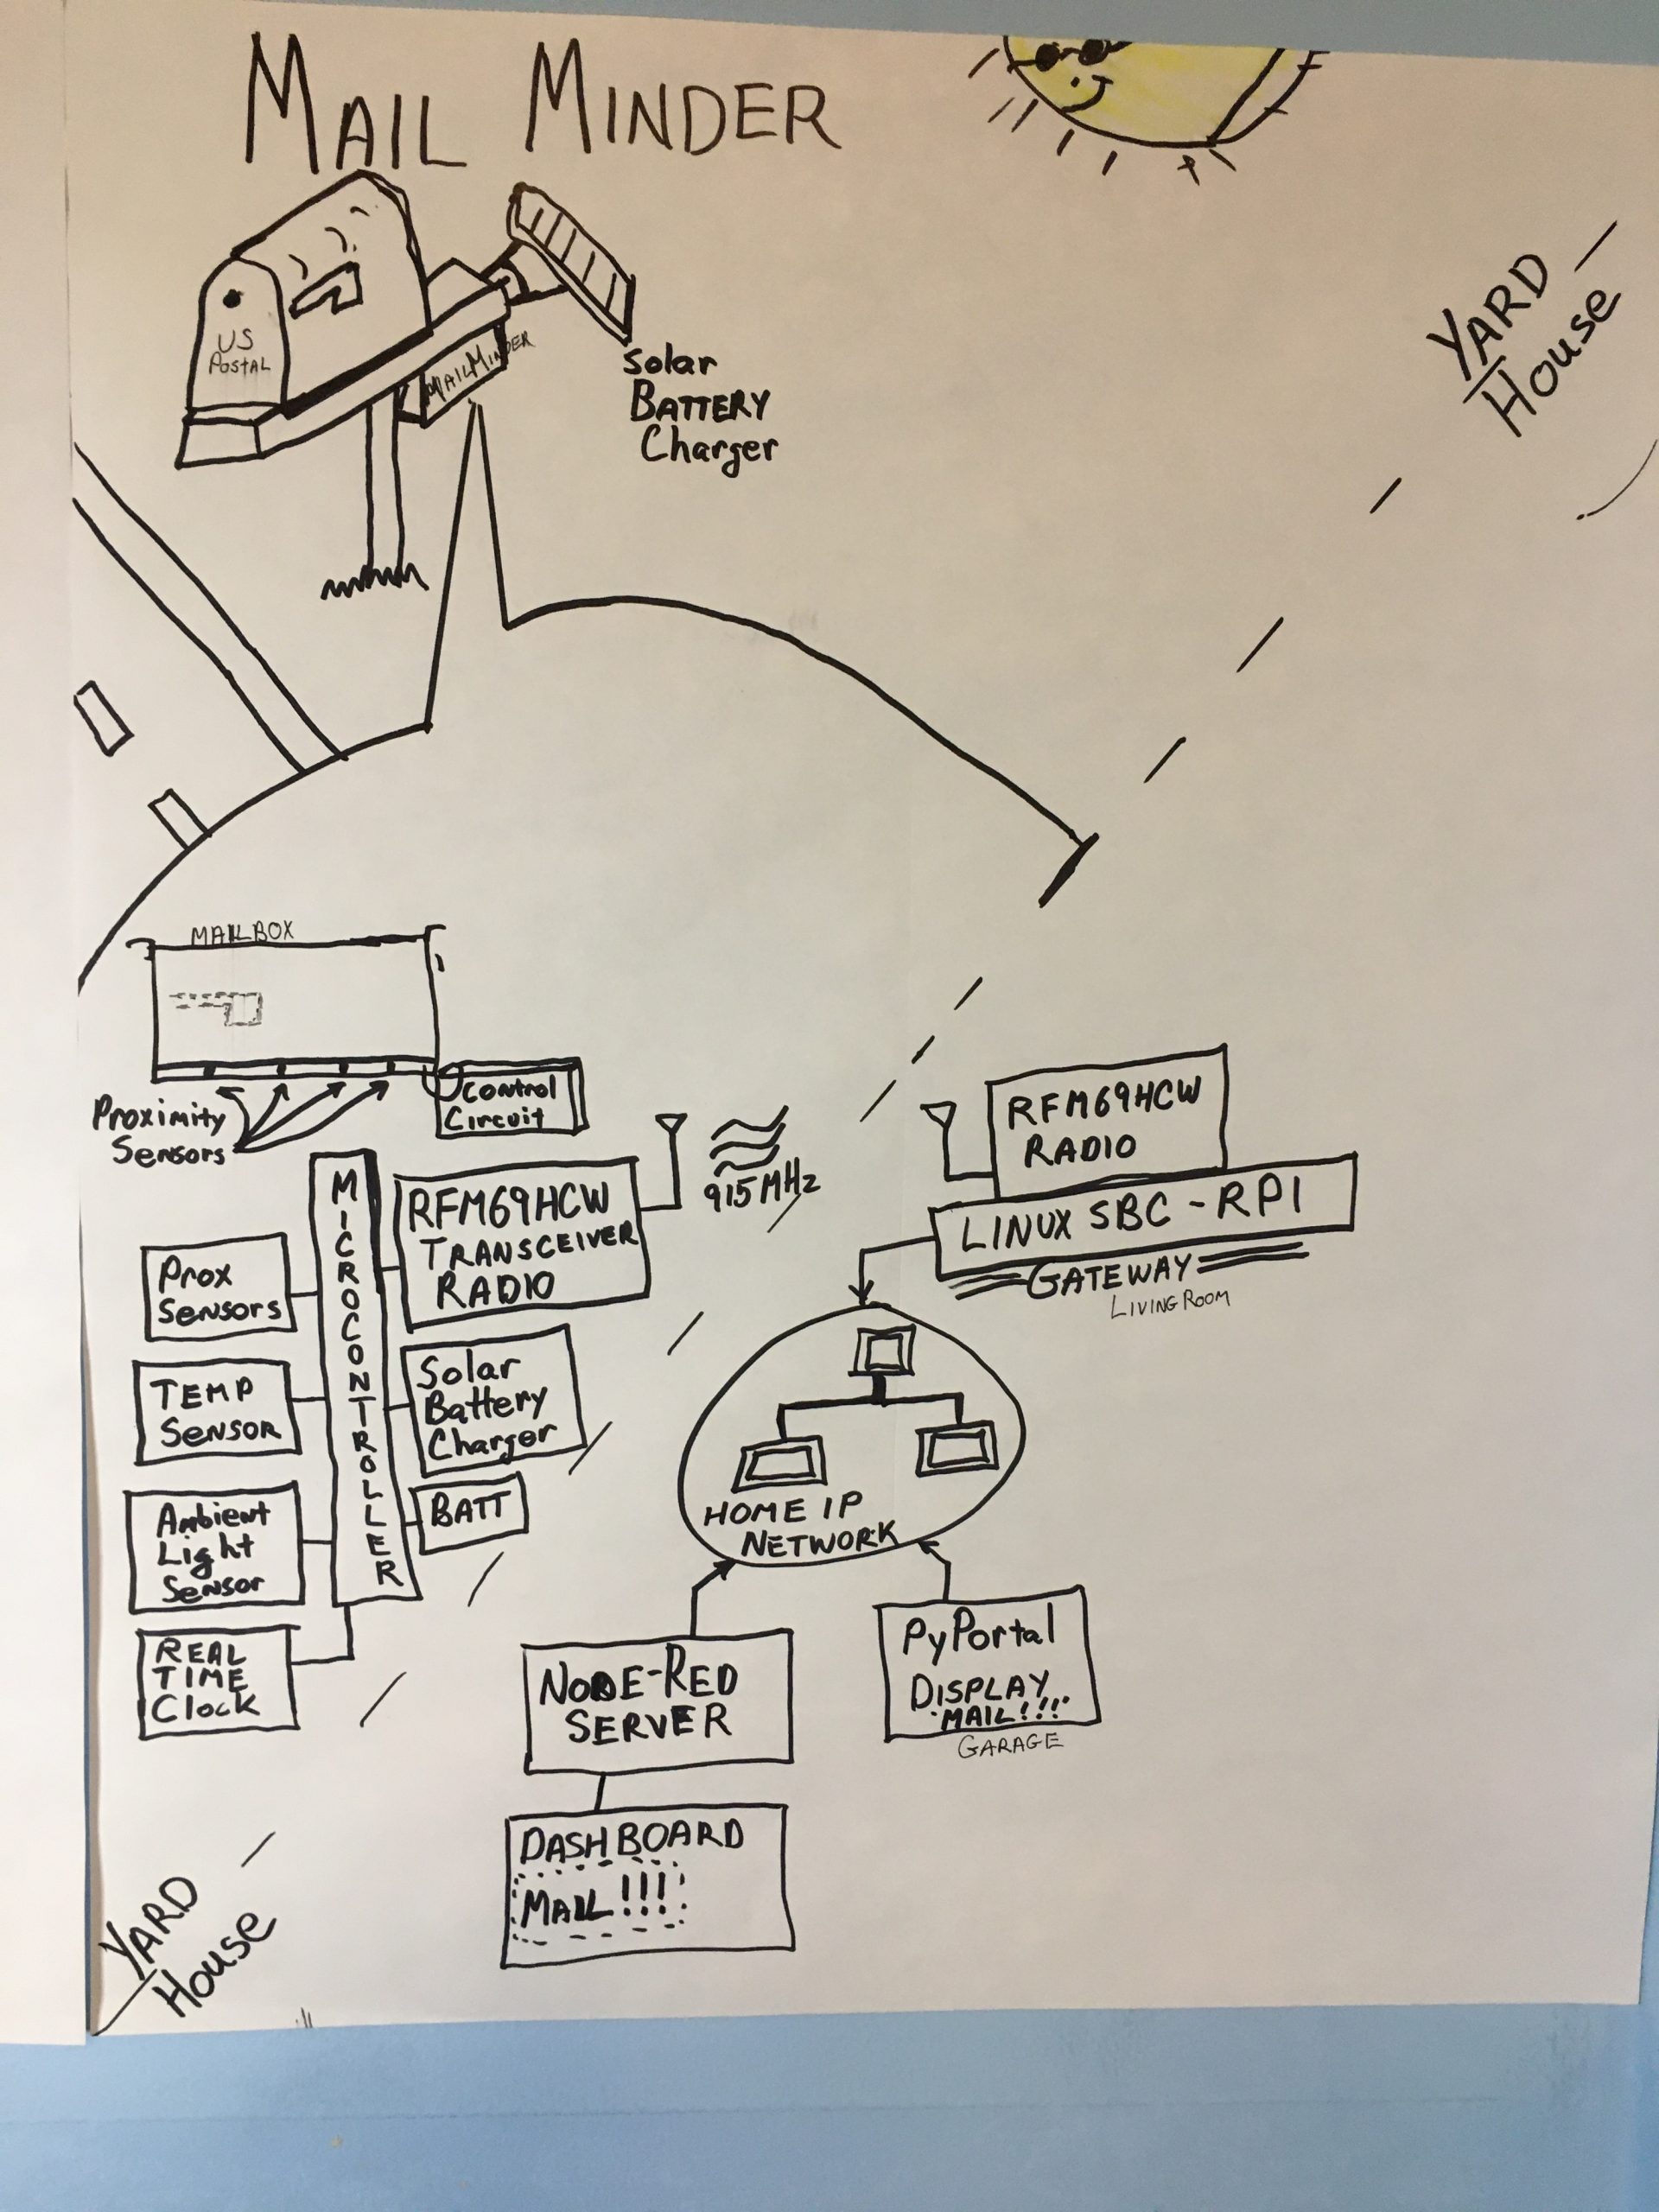 MAIL MINDER
US
POSTAL
MAILMINDER
Solar
BATTERY
Charger
YARD
House
MAILBOX
Proximity
Sensors
Control
Circuit
MICROCONTROLLER
RFM69HCW
TRANSCEIVER
RADIO
915 MHz
RFM69HCW
RADIO
LINUX SBC - RPI
GATEWAY
LIVING ROOM
Prox
Sensors
TEMP
SENSOR
Ambient
Light
Sensor
REAL
TIME
Clock
Solar
Battery
Charger
BATT
HOME IP
NETWORK
NODE-RED
SERVER
PyPortal
DISPLAY
MAIL!!!
GARAGE
DASHBOARD
MAIL!!!
YARD
House